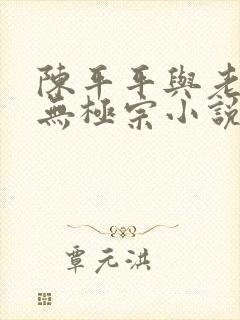 陳平平與老
無極宗小說
覃元洪